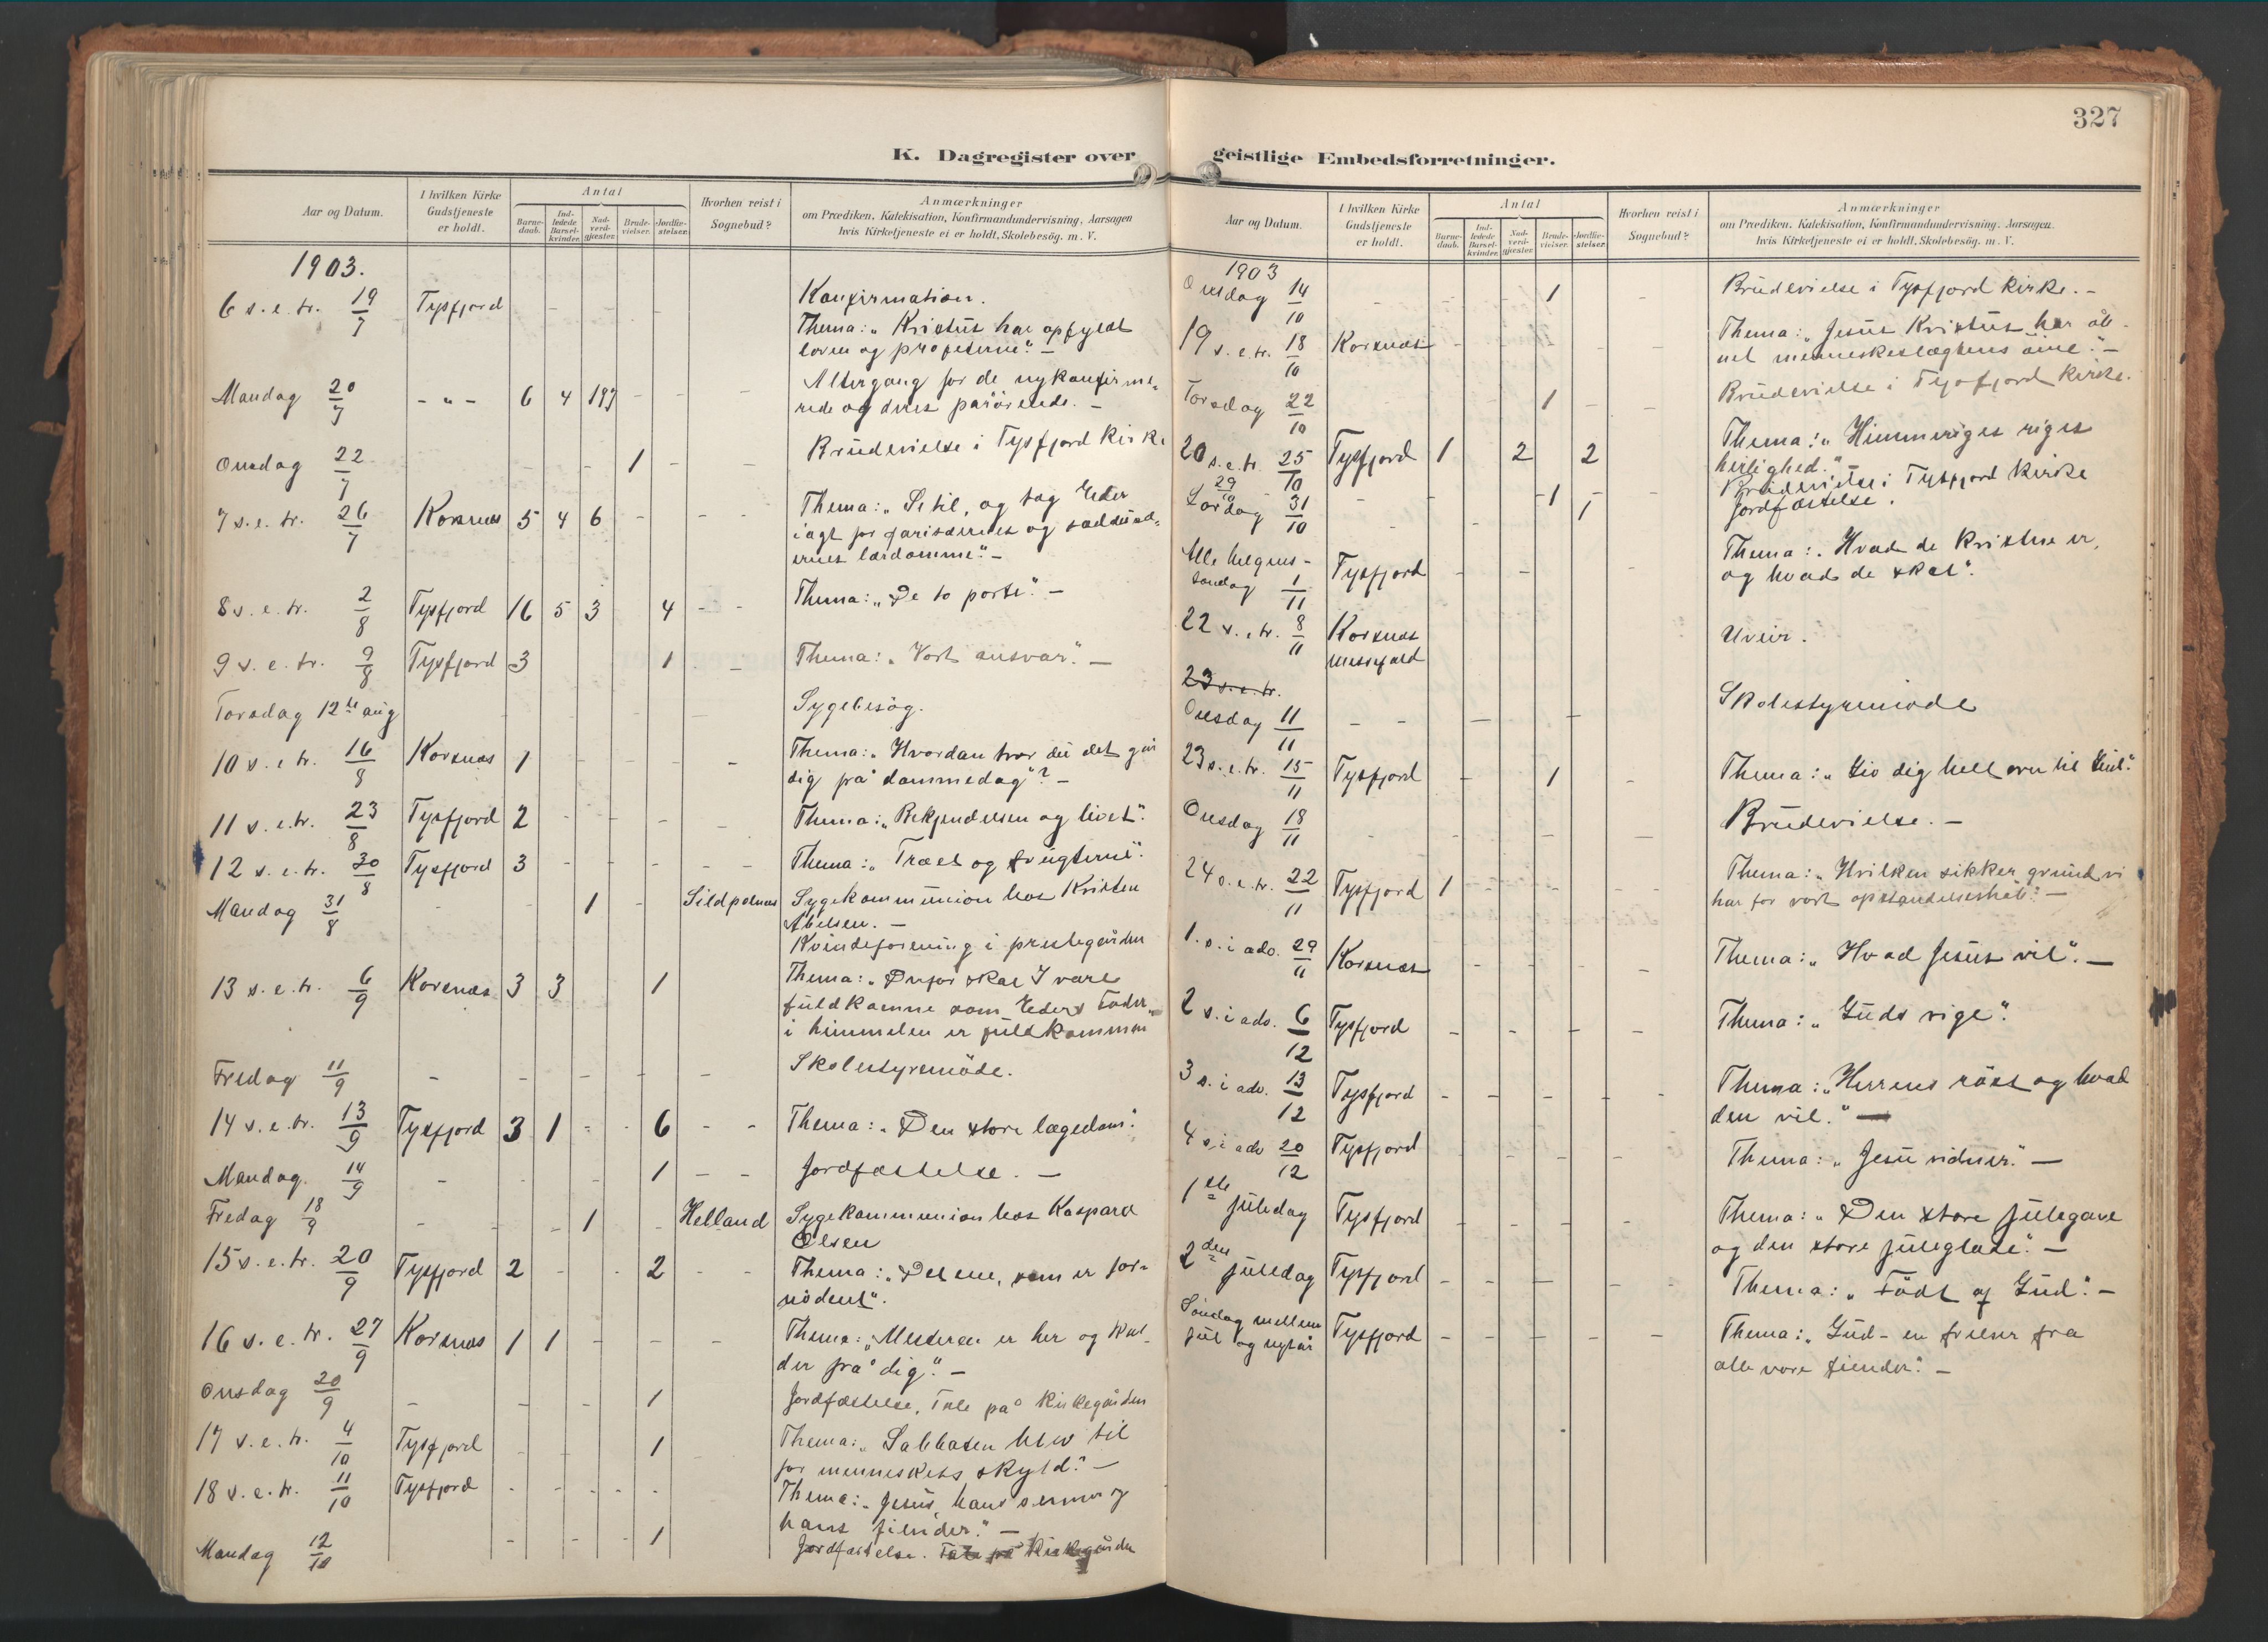 327
K. Dagregister over
geistlige Embedsforretninger.
Aar og Datum.
I hvilken Kirke Gudstjeneste er holdt.
Antal
Barne-daab.
Ind-ledede Barsel-kvinder.
Nad-verd-gjæster.
Brude-vielser.
Jordfæ-stelser.
Hvorhen reist i Sognebud?
Anmærkninger
om Prædiken, Katekisation, Konfirmandundervisning, Aarsagen
hvis Kirketjeneste ei er holdt, Skolebesög. m. V.
1903.
6 s. e. tr. 19/7 Tysfjord - - - Konfirmation.
Thema: „Kristus har opfyldt
loven og profeterne". -
Mandag 20/7 - „ - 6 4 197 - - - Altergang for de nykonfirme-
rede og deres pårörende. -
Onsdag 22/7 - - 1 - - Brudevielse i Tysfjord Kirke
7 s. e. tr. 26/7 Korsnes 5 4 6 - - - Thema: „Se til, og tag Eder
iagt for farisæernes og saddukæ-
ernes lærdomme". -
8 s. e. tr. 2/8 Tysfjord 16 5 3 4 - - Thema: „De to porte". -
9 s. e. tr. 9/8 Tysfjord 3 1 - Thema: „Vort ansvar". -
Torsdag 12te aug - - - Sygebesög.
10 s. e tr. 16/8 Korsnes 1 - Thema: „Hvordan tror du det går
dig på dommedag"? -
11 s. e. tr. 23/8 Tysfjord 2 - - - - - Thema: „Bekjendelsen og livet".
12 s. e. tr. 30/8 Tysfjord 3 - - - - - Thema: „Træet og frugterne".
Mandag 31/8 - - 1 - Sildpolnes Sygekommunion hos Kristen
Abelsen. -
Kvindeforening i prestegården
13 s. e. tr. 6/9 Korsnæs 3 3 1 - Thema: „Derfor skal I være
fuldkomne som Eders Fader
i himmelen er fuldkommen
Fredag 11/9 - - - - - Skolestyremöde.
14 s. e. tr. 13/9 Tysfjord 3 1 - - 6 - - Thema: „Den store lægedom".
Mandag 14/9 - - - 1 - - Jordfæstelse. -
Fredag 18/9 - - - 1 - Helland Sygekommunion hos Kaspara
Olsen
15 s. e. tr. 20/9 Tysfjord 2 - - 2 - - Thema: „Det ene, som er for-
nödent".
16 s. e. tr. 27/9 Korsnæs 1 1 - - - Thema: „Mesteren er her og kal-
der på dig". -
Onsdag 20/9 - - - 1 Jordfæstelse, Tale på kirkegården
17 s. e. tr. 4/10 Tysfjord - - 1 Thema: „Sabbaten blev til
for menneskets skyld". -
18 s. e. tr. 11/10 Tysfjord - - - - Thema: „Jesus, hans venner og
hans fiender". -
Mandag 12/10 - - 1 Jordfæstelse. Tale på kirkegården
Aar og Datum.
I hvilken Kirke Gudstjeneste er holdt.
Antal
Barne-daab.
Ind-ledede Barsel-kvinder.
Nad-verd-gjæster.
Brude-vielser.
Jordfæ-stelser.
Hvorhen reist i Sognebud?
Anmærkninger
om Prædiken, Katekisation, Konfirmandundervisning, Aarsagen
hvis Kirketjeneste ei er holdt, Skolebesög. m. V.
1903
Onsdag 14/10 - - - 1 - - Brudevielse i Tysfjord Kirke. -
19 s. e. tr. 18/10 Korsnæs - - - - Thema: „Jesus Kristus har åb-
net menneskeslægtens öine". -
Torsdag 22/10 - - 1 - - Brudevielse i Tysfjord Kirke.
20 s. e. tr. 25/10 Tysfjord 1 2 2 Thema: „Himmeriges riges
herlighed". -
29/10 - - 1 - - Brudevielse i Tysfjord Kirke
Lördag 31/10 - - 1 Jordfæstelse.
Alle helgens-
söndag 1/11 Tysfjord - - - Thema: „Hvad de kristne er,
og hvad de skal".
22 s. e. tr. 8/11 Korsnæs
messefald Uveir.
23 s. e. tr.
Onsdag 11/11 - - - - Skolestyremöde
23 s. e. tr. 15/11 Tysfjord - 1 - Thema: „Giv dig helt over til Gud".
Onsdag 18/11 - - - - - Brudevielse. -
24 s. e. tr. 22/11 Tysfjord 1 - - - - - Thema: „Hvilken sikker grund vi
har for vort opstandelseshåb". -
1. s. i adv. 29/11 Korsnæs - - - - - Thema: „Hvad Jesus vil". -
2 s. i adv. 6/12 Tysfjord - - - - - Thema: „Guds rige".
3 s. i adv. 13/12 Tysfjord - - - - - Thema: „Herrens röst og hvad
den vil." -
4 s. i adv 20/12 Tysfjord Thema: „Jesu vidner". -
1ste juledag Tysfjord - - - - - Thema: „Den store julegave
og den store juleglæde". -
2den juledag Tysfjord - - - - - Thema: „Födt af Gud". -
Söndag mellem
jul og nytår Tysfjord - - - - - - Thema: „Gud - en frelser fra
alle vore fiender". -